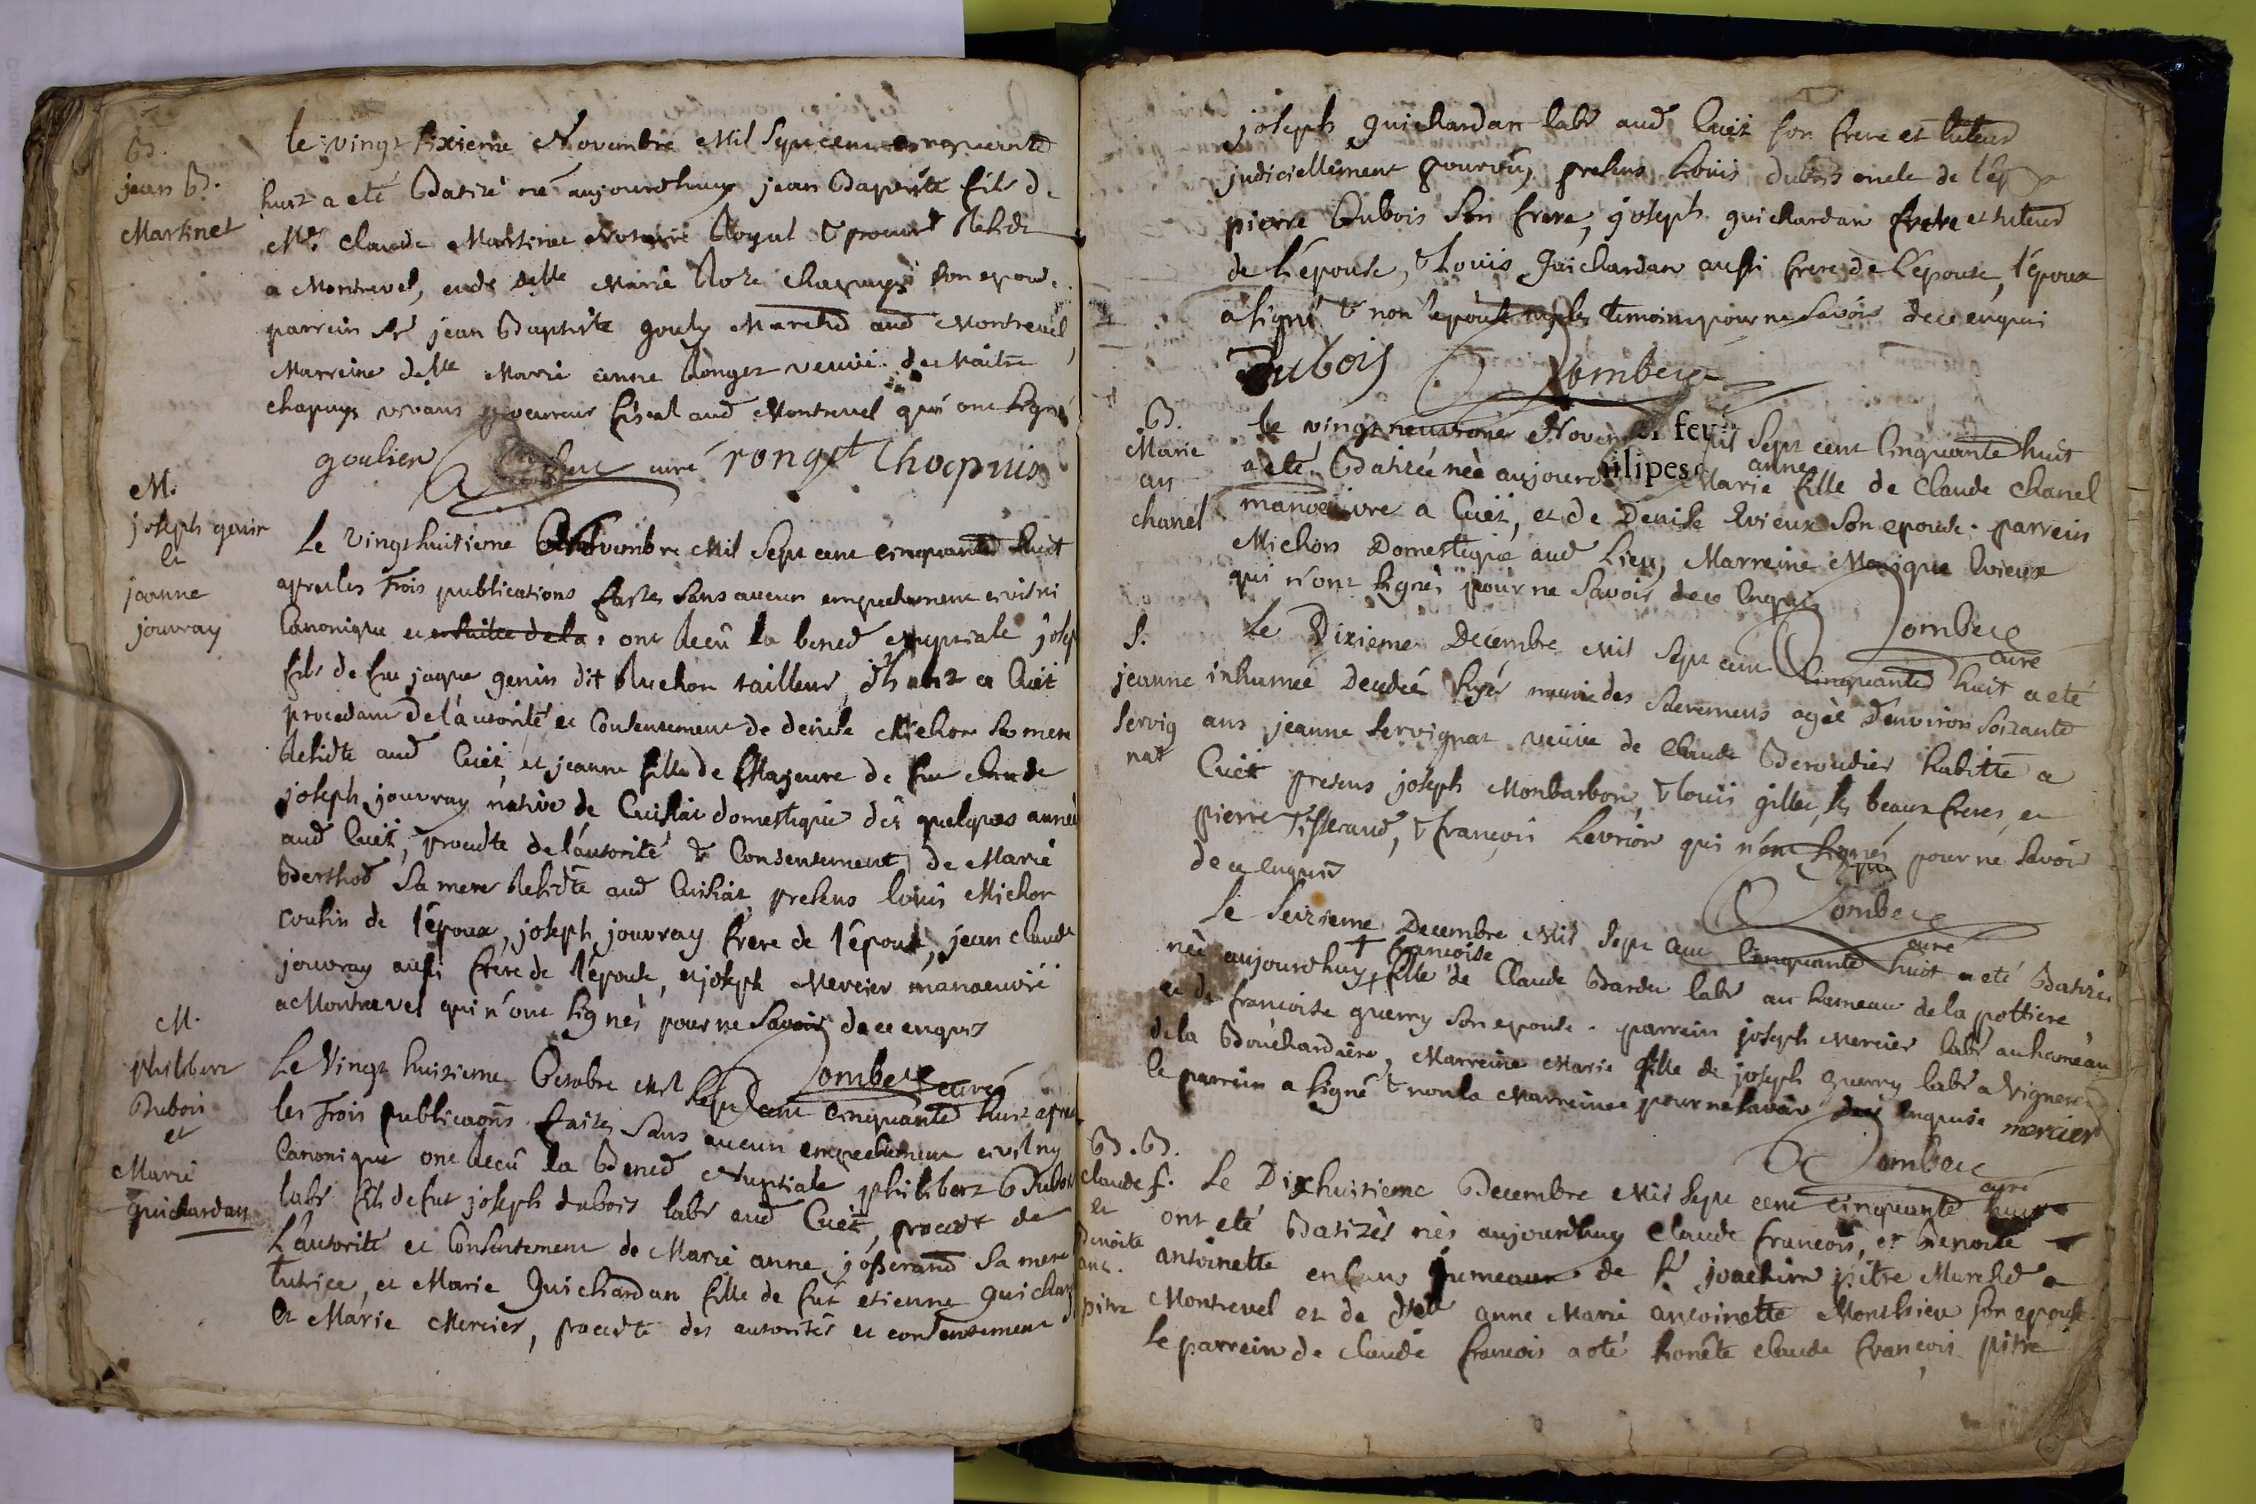 B.
jean B.
Martinet
le vingt sixieme Novembre Mil Sept cent cinquante
huit a eté Batizé né aujourdhuy jean Baptiste fils de
Mre. Claude Martinet Notaire Royal & procur
a Montrevel, et de delle Marie Roze Chapuys son epouse
parrein Sr jean Baptiste gouly Marchd aud Montrevel,
Marreine delle Marie anne Ronget veuve de Maitre
chapuys vivant procureur fiscal aud Montrevel qui ont signé
goulier curé ronget Chapuis
M.
joseph genin
et
jeanne
jouvray
Le vingt huitieme Novembre Mil Sept cent cinquante huit
apres les Trois publications faites sans aucun empechement civil ni
Canonique et ensuitte de la ont Recû la bened nuptiale joseph
fils de feu jaque genin dit Ruchon tailleur a Cuét
procedant de l'autorité et Consentement de denise Michon sa mere
Residte aud Cuét, et jeanne fille de Majeure de feu claude
joseph jouvray native de Cuisiat domestique des quelques années
aud Cuét, procedte de l'autorité & Consentement de Marie
Berthod sa mere Residte aud Cuisiat, presens louis Michon
cousin de l'époux, joseph jouvray frere de l'épouse, jean claude
jouvray aussi frere de l'épouse, et joseph Mercier manoeuvre
a Montrevel qui n'ont signés pour ne savoir de ce enquis
Lombere curé
M.
philibert
Dubois
et
Marie
guichardan
Le vingt huitieme Octobre Mil Sept cent cinquante huit apres
les Trois publicaons faites sans aucun empechement civil ny
Canonique ont Recû la Bened Nuptiale philibert Dubois
labr fils de fut joseph dubois labr aud Cuét, procedt de
L'autorité et Consentement de Marie anne josserand sa mere
tutrice, et Marie Guichardan fille de fut etienne Guichard
et Marie Mercier, procedte des autorités et consentement
joseph guichardan labr aud Cuét son frere et tuteur
judiciellement pourvû, presens Louis dubois oncle de l'ép
pierre Dubois son frere, joseph guichardan frere et tuteur
de l'épouse, & Louis Guichardan aussi frere de l'épouse, l'époux
a signé & non l'epouse ny les temoins pour ne savoir de ce enquis
Dubois Lombere
B.
Marie
an
chanel
le vingt neuvieme Novem Mil Sept cent Cinquante huit
a eté Batizée née aujourd Marie anne fille de Claude Chanel
manoeuvre a Cuét, et de Denise Evieux son epouse. parrein
Michon Domestique aud Lieu, Marreine Monique Evieux
qui n'ont signés pour ne Savoir de ce Enquis
Lombere
curé
S.
jeanne
servig
nat
Le Dixieme Decembre Mil Sept cent Cinquante huit a eté
inhumée Decedée hyer munie des Sacremens agée d'environ soixante
ans jeanne servignat veuve de Claude Beroudier habitte a
Cuét presens joseph Monbarbon, & louis gillet ses beaux freres, et
pierre Tisserand, & francois Levrier qui n'ont signés pour ne savoir
de ce enquis
Lombere
curé
Le Seizieme Decembre Mil Sept Cent Cinquante huit a eté Batizée
née aujourdhuy + francoise fille de Claude Bardet labr au hameau de la pottiere
et de francoise guerry son epouse. parrein joseph Mercier labr au hameau
de la Bouchardiere, Marreine Marie fille de joseph guerry labr a Vigneres
le parrein a signé & non la Marreine pour ne savoir de ce Enquise mercier
Lombere
curé
B. B.
Claude f.
et
Benoite
ant.
pitre
Le Dixhuitieme Decembre Mil Sept cent cinquante huit
ont eté Batizés nés aujourdhuy Claude francois, et Benoite
antoinette enfans jumeaux de Sr joachim pitre Marchd a
Montrevel et de delle anne Marie antoinette Monthieu son epouse
le parrein de claude francois a eté honête claude francois pitre